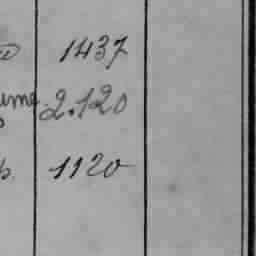 1437
ume 2.120
1120